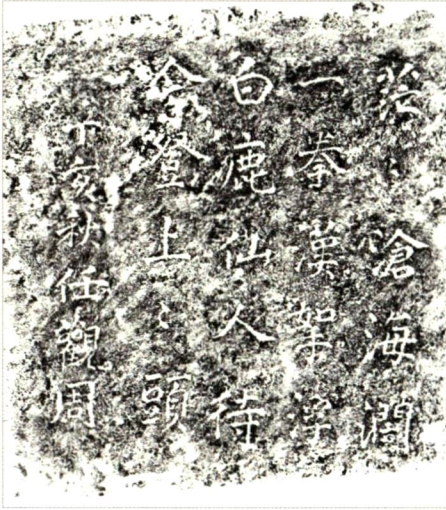 茫〻滄海濶
一拳漢挐浮
白鹿仙人待
今登上〻頭
丁亥秋任觀周